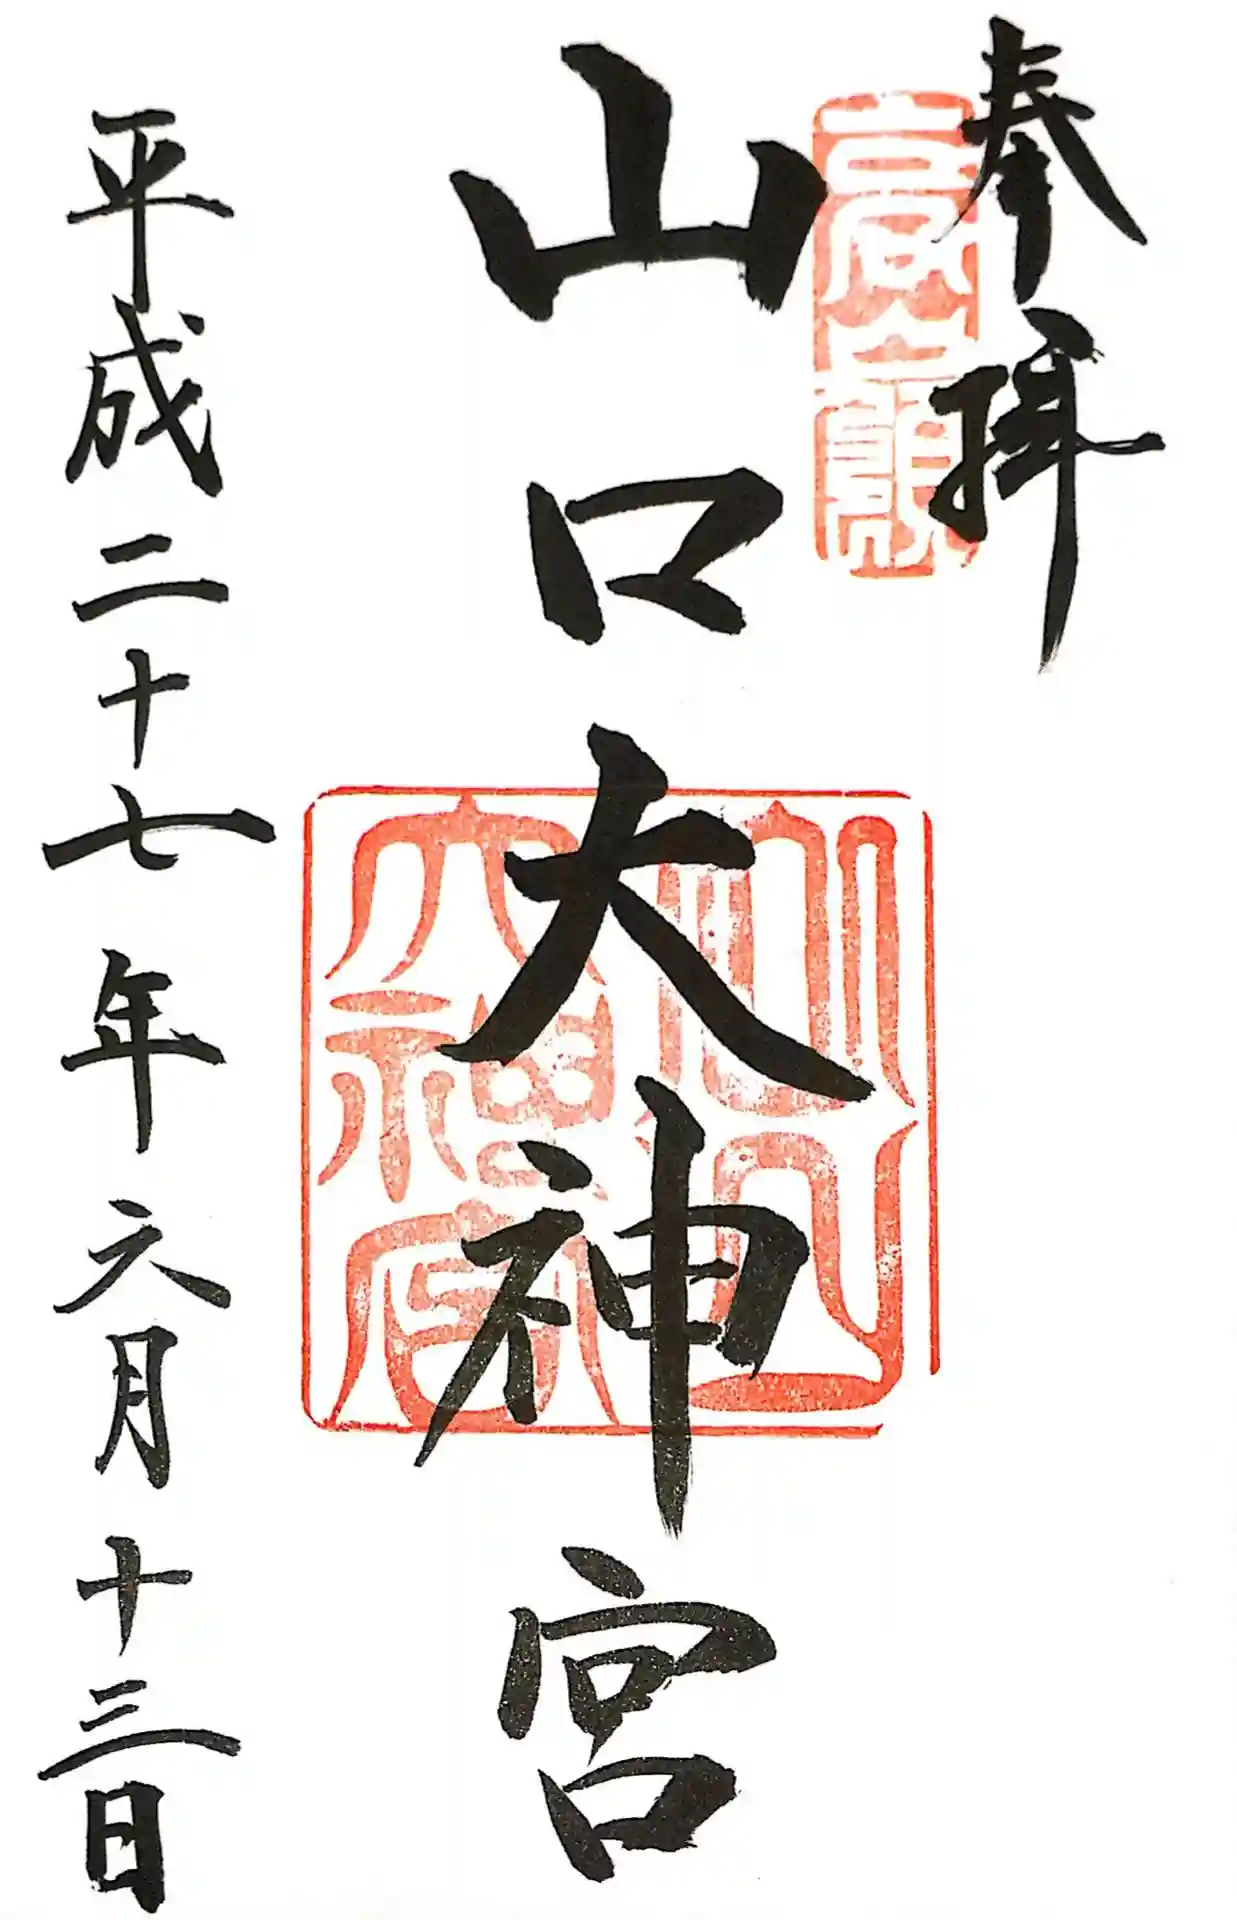 奉拝
高嶺
山口大神宮
山口
大神宮
平成二十七年六月十三日